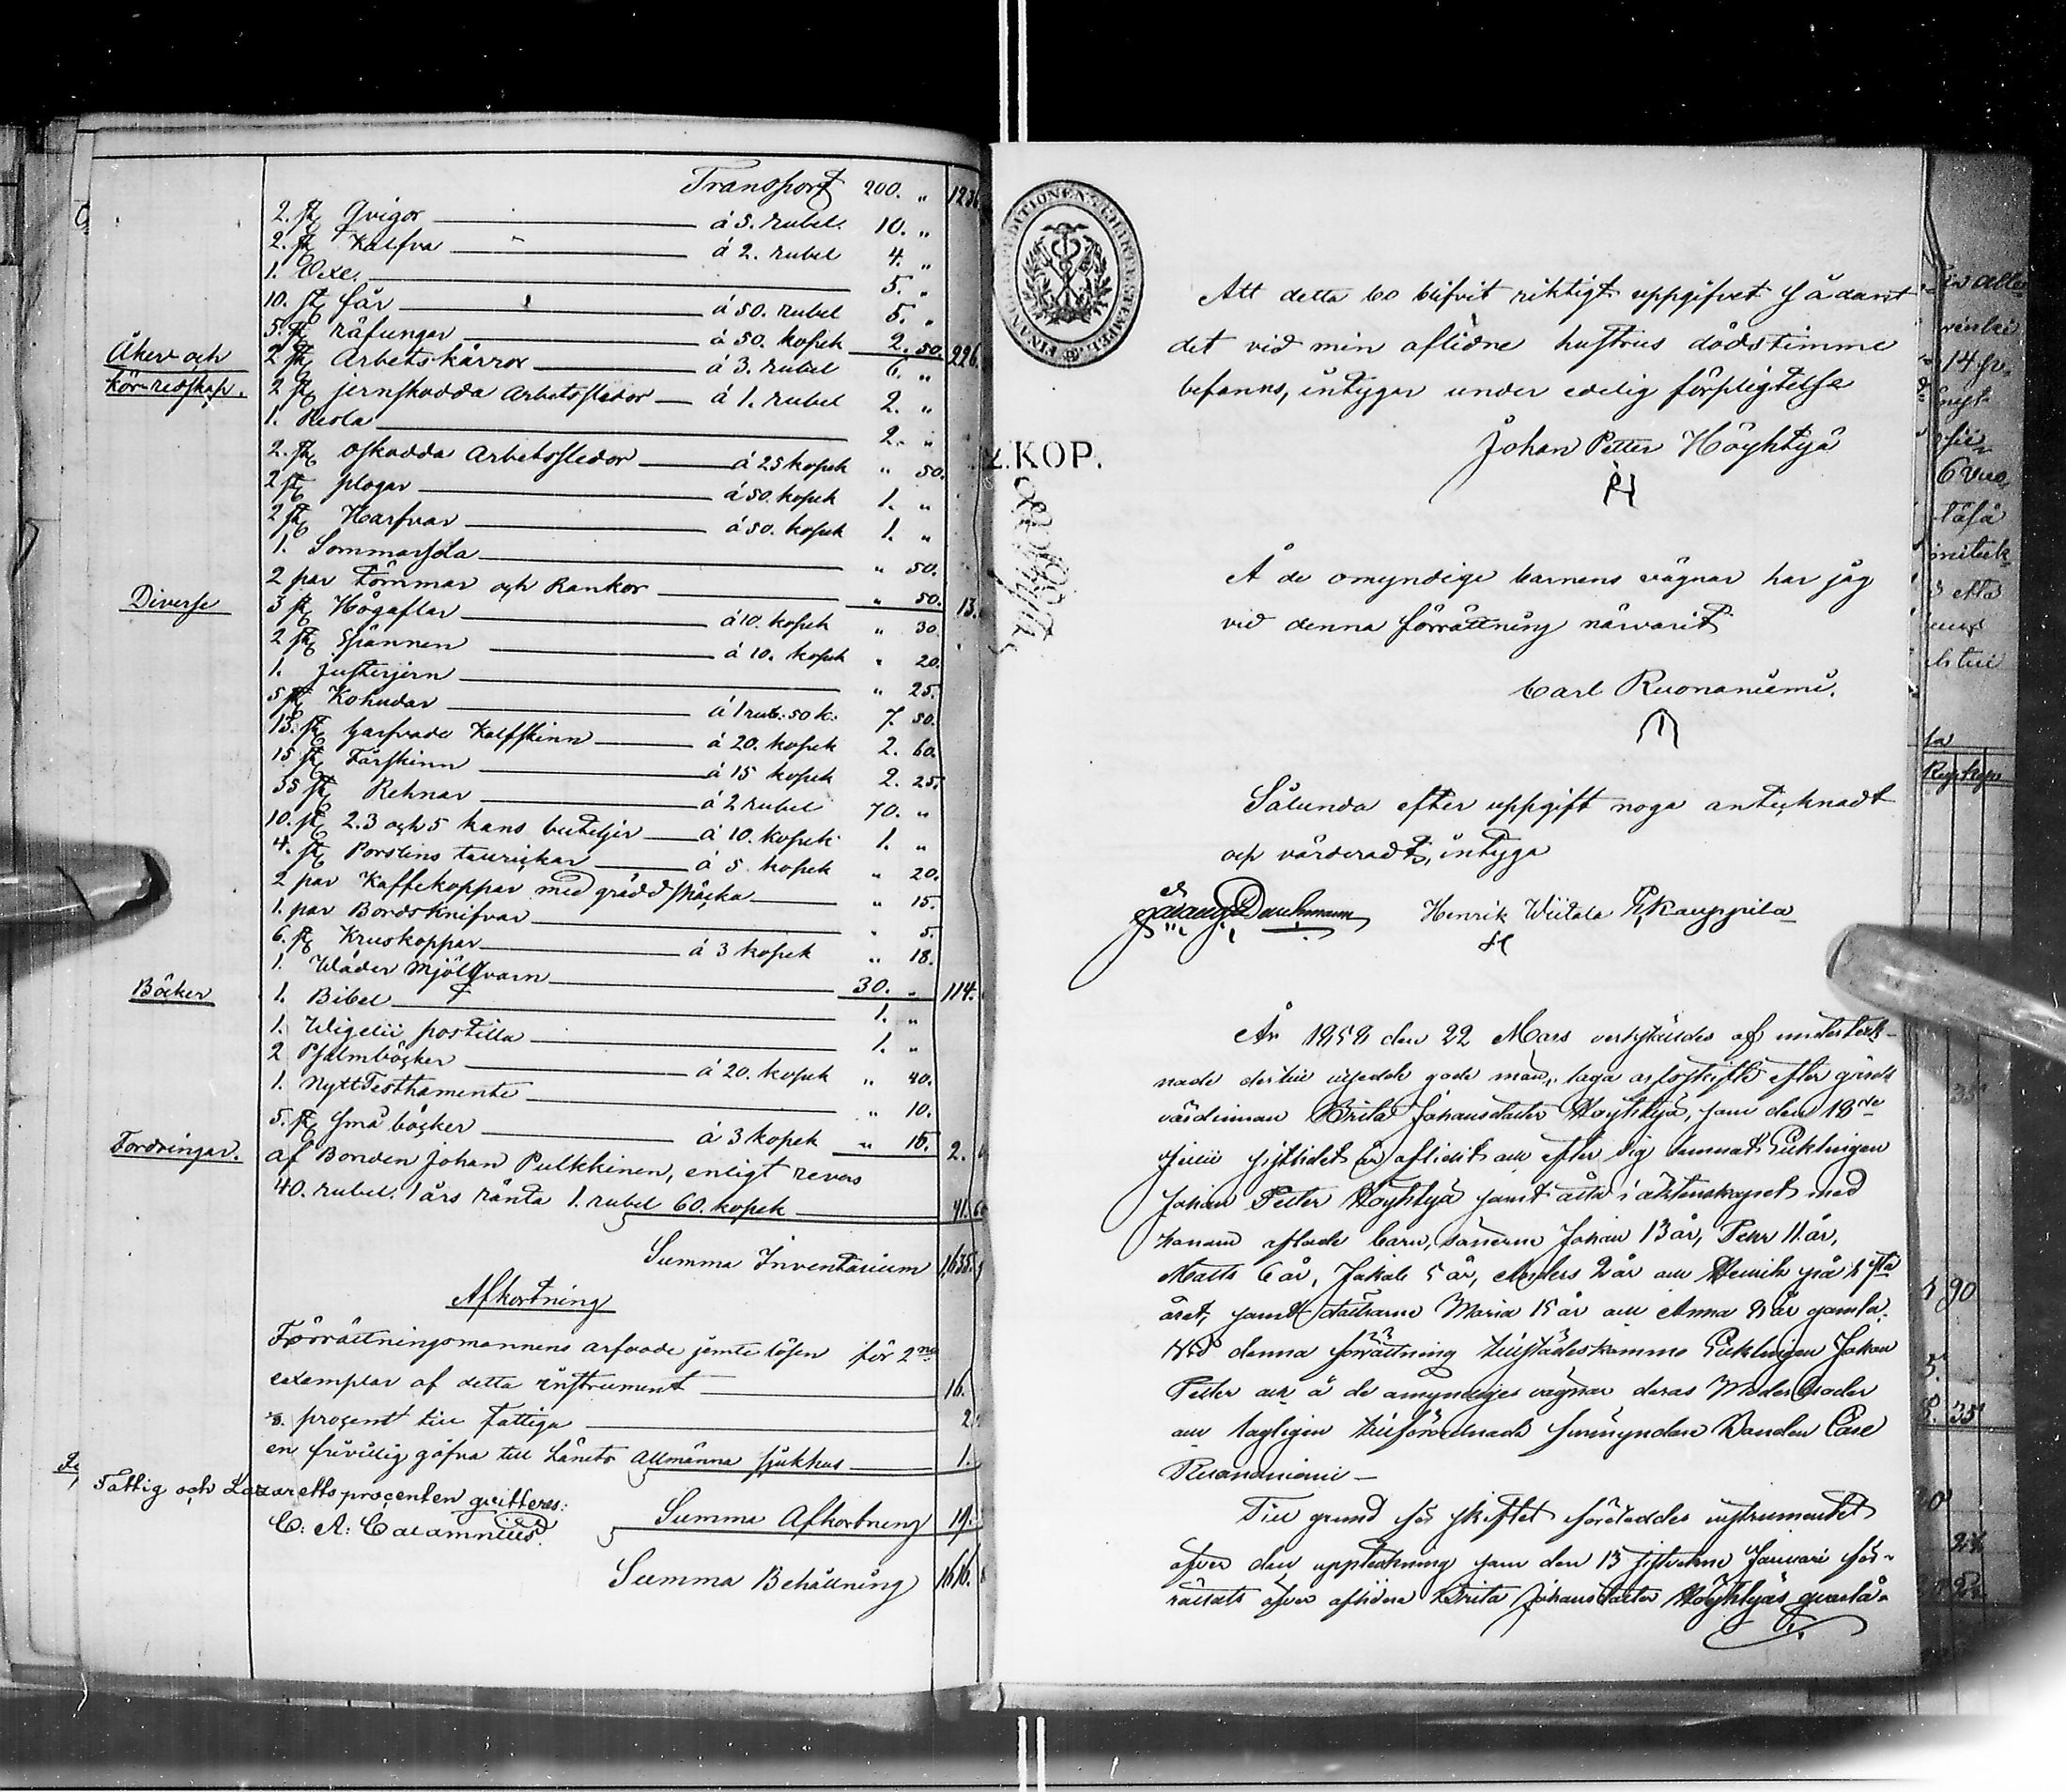 Transport 200. " 1236
2. st Qvigor á 5. rubel. 10. "
2. st Kalfva á 2. rubel 4. "
1. Oxe 5. "
10. st får á 50. rubel 5. "
5. st räfungar á 50. kopek 2. 50. 226.
Åker och
Kör-redskap.
2 st Arbetskärror á 3. rubel 6. "
2 st jernskodda Arbetsslädor á 1. rubel 2. "
1. Resla 2. "
2. st oskodda Arbetsslädor á 25 kopek " 50.
2 st plogar á 50. kopek 1. "
2 st Harfvar á 50. kopek 1. "
1. Sommarsola " 50.
2 par Tömmar och Rankor " 50. 13.
Diverse
3 st Högaflar á 10. kopek " 30.
2 st Spännen á 10. kopek " 20.
1. Justerjern " 25.
5 st Kohudar á 1 rub. 50 k. 7. 50.
13. st garfvade Kalfskinn á 20. kopek 2. 60.
15 st Fårskinn á 15 kopek 2. 25.
35 st Rehnar á 2 rubel 70. "
10. st 2.3 och 5 kans buteljer á 10. kopek 1. "
4. st Porslins taurickar á 5. kopek " 20.
2 par Kaffekoppar med gräddsnäcka " 15.
1. par Bordsknifvar " 5.
6. st Kruskoppar á 3 kopek " 18.
1. Wäder Mjölqvarn 30. " 114.
Böcker
1. Bibel 1. "
1. Wigelii postilla 1. "
2 Psalmböcker á 20. kopek " 40.
1. Nytt Testhamente " 10.
5. st små böcker á 3 kopek " 15. 2.
Fordringar.
af Bonden Johan Pulkkinen, enligt revers
40. rubel. 1 års ränta 1. rubel 60. kopek 41. 60
Summa Inventarium 1,635.
Afkortning
Förrättningsmannens arfvode jemte lösen för 2ne
exemplar af detta instrument 16.
procent till Fattiga 2.
en frivillig gåfva till Länets Allmänna sjukhus 1.
Fattig och Lazarettsprocenten qvitteras:
C: A: Calamnius.
Summa Afkortning 19.
Summa Behållning 1616.
FINANCE EXPEDITIONENS CHARTÆ STEMPEL
KOP.
Att detta bo blifvit riktigt uppgifvet sådant
det vid min aflidne hustrus dödstimme
befanns, intygar under edelig förpligtelse
Johan Petter Höyhtyä
Å de omyndige barnens vägnar har jag
vid denna förrättning närvarit
Carl Ruonaniemi.
Sålunda efter uppgift noga antecknadt
och värderadt, intyga
Henrik Wiitala Kauppila
År 1858 den 22 Mars verkställdes af underteck-
nade dertill utsedde gode män, laga arfsskifte efter gårds
värdinnan Brita Johansdotter Höyhtyä, som den 18de
Julii sistlidet år aflidit och efter sig lemnat Enklingen
Johan Petter Höyhtyä samt åtta i äktenskapet med
honom aflade barn, sönerne Johan 13 år, Pehr 11. år,
Matts 6 år, Jakob 5 år, Anders 2 år och Henrik på 1sta
året, samt döttrarne Maria 15 år och Anna 8 år gamla.
Vid denna förrättning tillstädeskommo Enklingen Johan
Petter och å de omyndiges vägnar deras Moderbroder
och lagligen tillförordnade förmyndare Bonden Carl
Ruonaniemi —
Till grund för skiftet företeddes instrumentet
öfver den uppteckning som den 13 sistvekne Januari för-
rättats öfver aflidne Brita Johansdotter Höyhtyäs qvarlå-